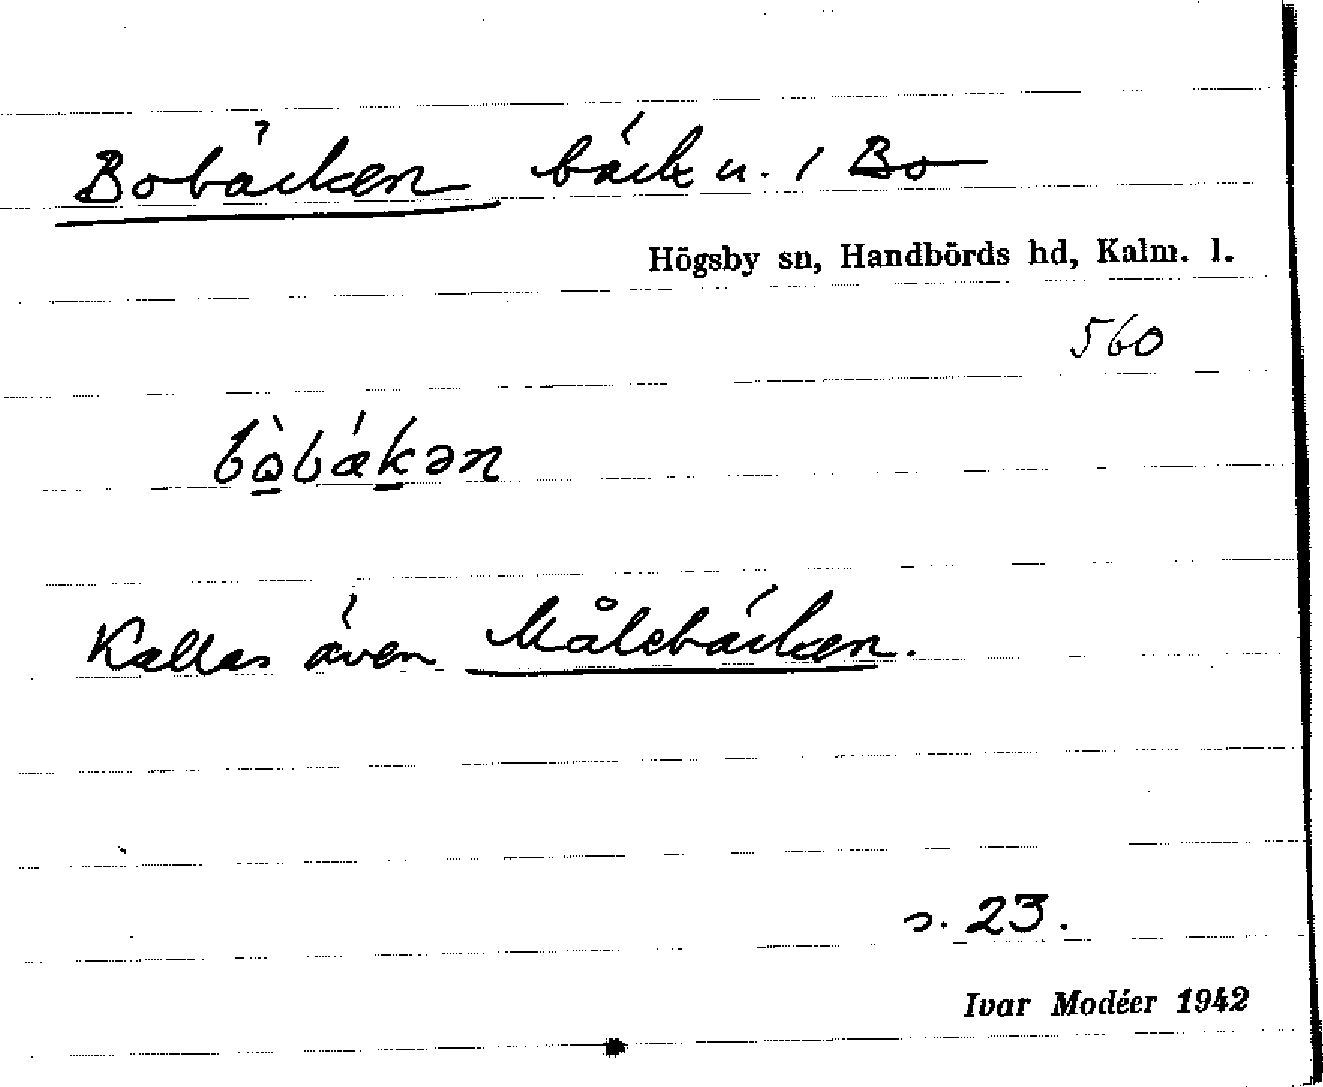 Bobäcken bäck u. / Bo
Högsby sn, Handbörds hd, Kalm. l.
560
bò̱báḵən
Kallas även Målebäcken.
s. 23.
Ivar Modéer 1942